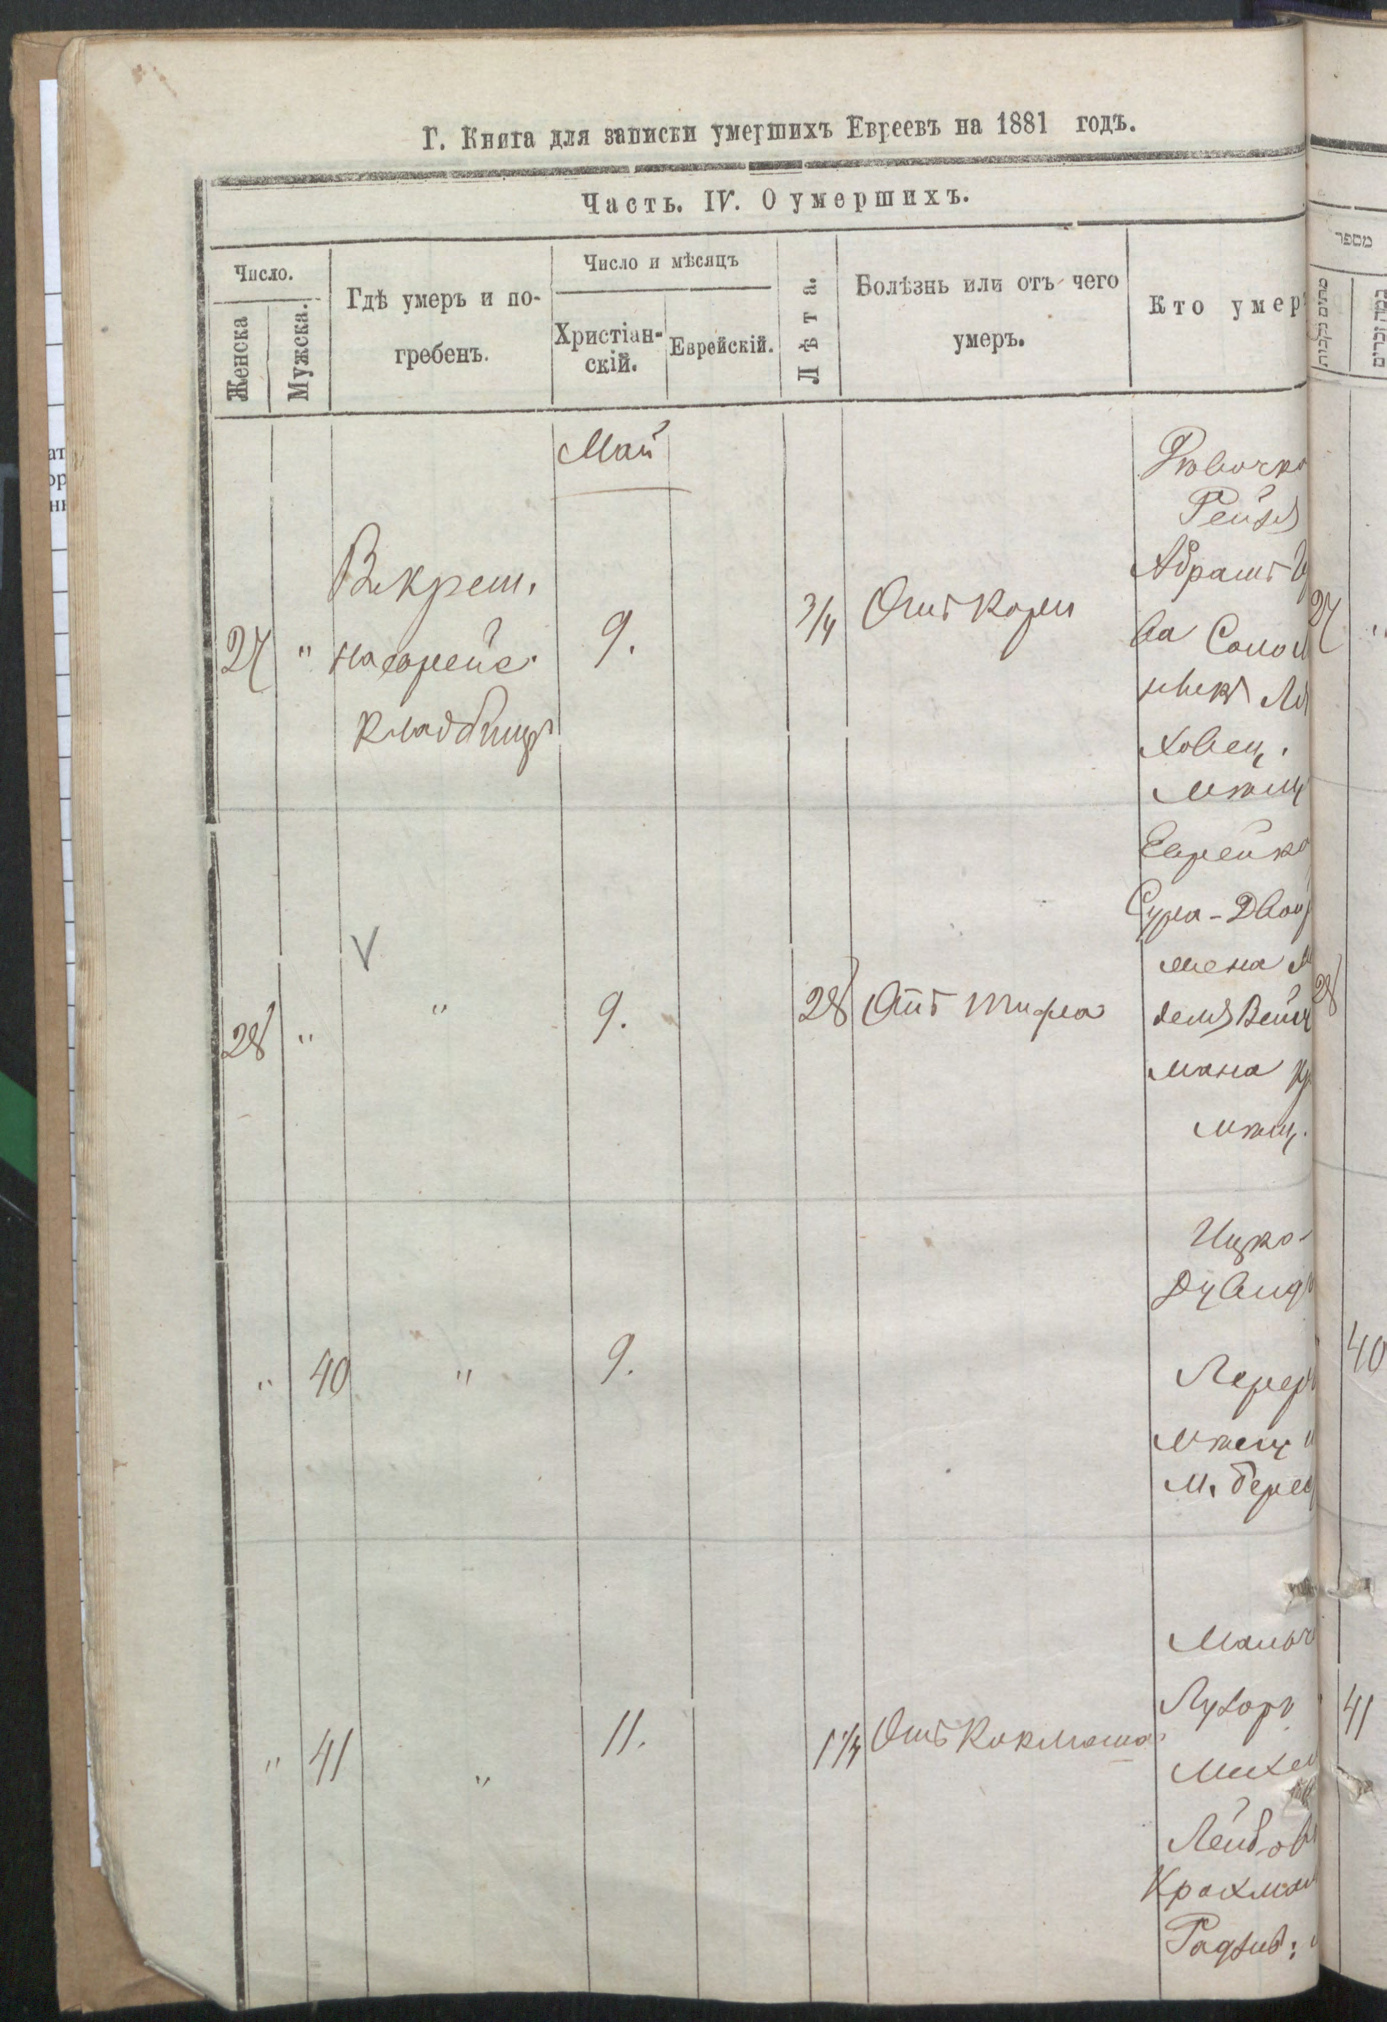 Г. Книга для записки умершихъ Евреевъ на 1881 годъ.
Часть. IV. О умершихъ.
Число.
Женска
Мужска.
Гдѣ умеръ и по-
гребенъ.
Число и мѣсяцъ
Христіан-
скій.
Еврейскій.
Лѣта.
Болѣзнь или отъ чего
умеръ.
Кто умер
מספר
Май
27 "
Вкрем.
на еврейс.
кладбищѣ
9.
3/4
Отъ кори
Дѣвочка
Рейзя
Абрамъ
ва Солом
Ля
ховец.
мѣщ
27
28 "
"
9.
28
Отъ тифа
Еврейка
Сура-Двой
жена М
деля Вейц
мана Кр
мѣщ.
28
" 40
"
9.
Ицко-
Лерер
мѣщ
м. берес
40
" 41
"
11.
1 1/4
Отъ коклюша
Мальч
Михел
Лейбов
Крахмал
Радзив:
41